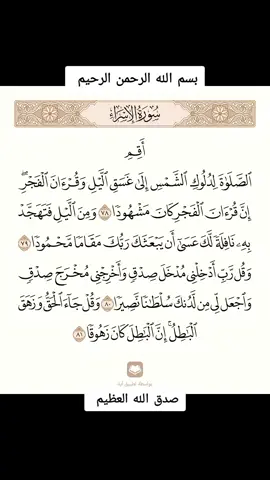 بسم الله الرحمن الرحيم
سُورَةُ الإِسْرَاءِ
أَقِمِ
ٱلصَّلَوٰةَ لِدُلُوكِ ٱلشَّمۡسِ إِلَىٰ غَسَقِ ٱلَّيۡلِ وَقُرۡءَانَ ٱلۡفَجۡرِۖ
إِنَّ قُرۡءَانَ ٱلۡفَجۡرِ كَانَ مَشۡهُودٗا ٧٨ وَمِنَ ٱلَّيۡلِ فَتَهَجَّدۡ
بِهِۦ نَافِلَةٗ لَّكَ عَسَىٰٓ أَن يَبۡعَثَكَ رَبُّكَ مَقَامٗا مَّحۡمُودٗا ٧٩
وَقُل رَّبِّ أَدۡخِلۡنِي مُدۡخَلَ صِدۡقٖ وَأَخۡرِجۡنِي مُخۡرَجَ صِدۡقٖ
وَٱجۡعَل لِّي مِن لَّدُنكَ سُلۡطَٰنٗا نَّصِيرٗا ٨٠ وَقُلۡ جَآءَ ٱلۡحَقُّ وَزَهَقَ
ٱلۡبَٰطِلُۚ إِنَّ ٱلۡبَٰطِلَ كَانَ زَهُوقٗا ٨١
بواسطة تطبيق آية
صدق الله العظيم